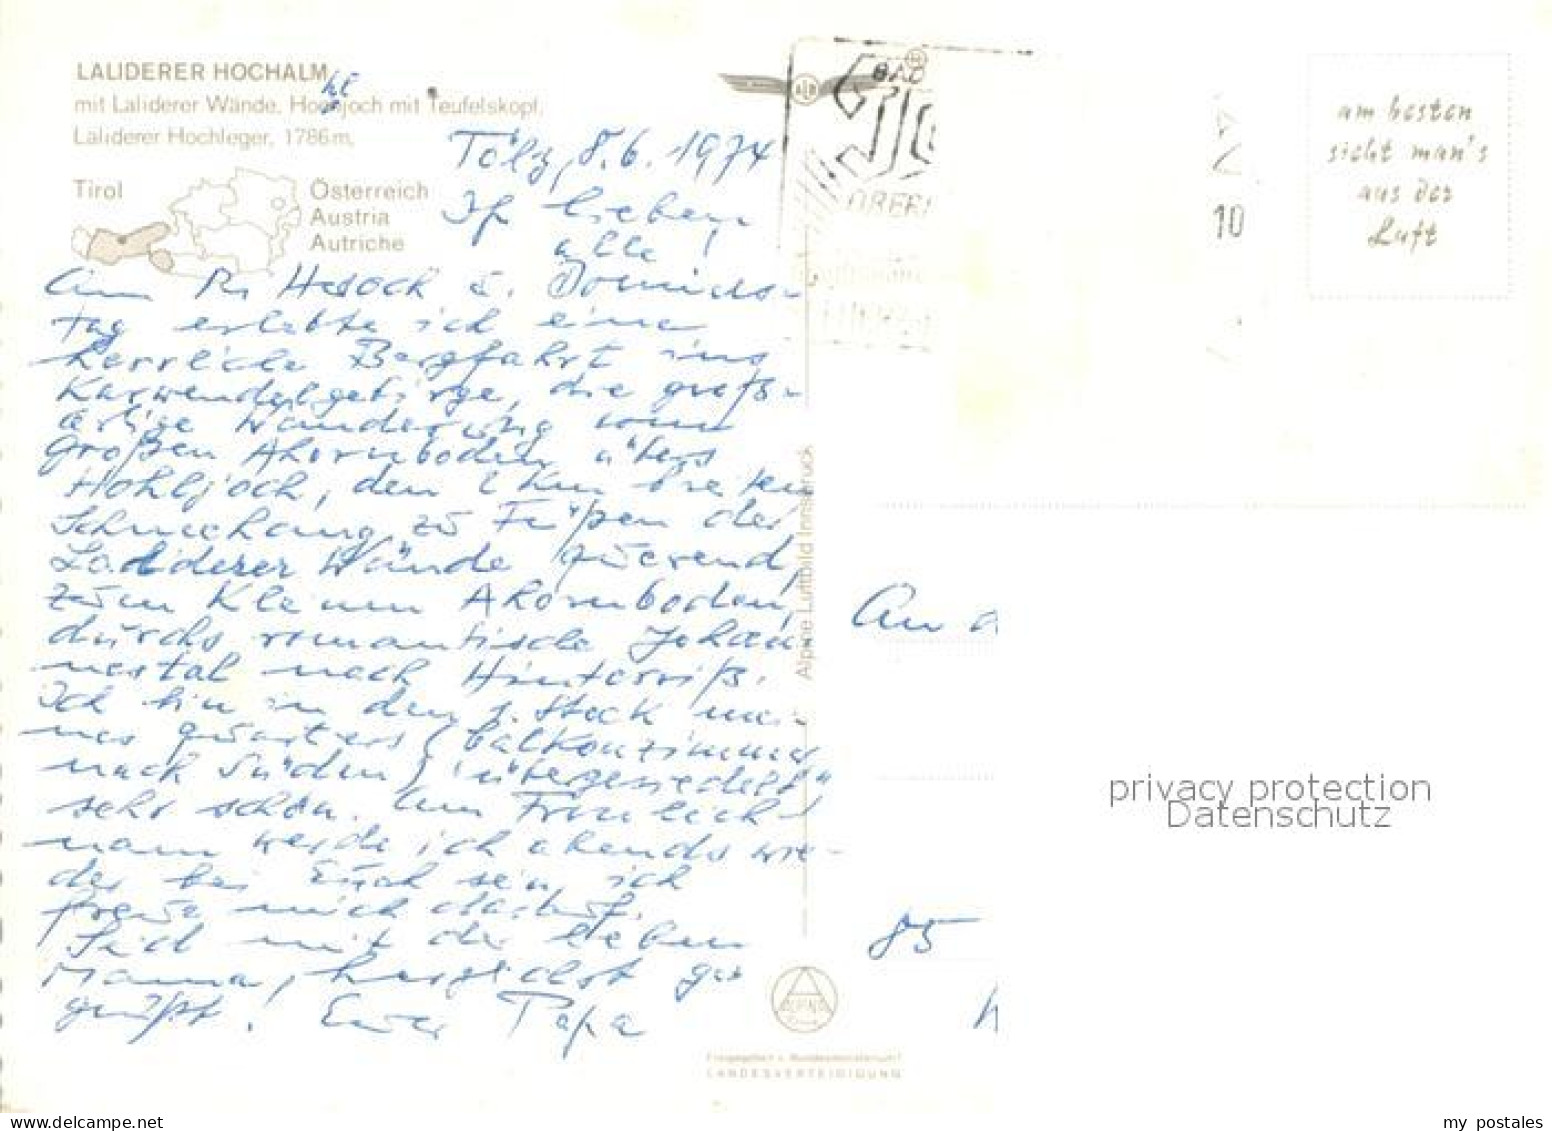 LALIDERER HOCHALM
hl
mit Laliderer Wände, Hochjoch mit Teufelskopf,
Laliderer Hochleger, 1786m,
Tirol
Österreich
Austria
Autriche
BAD
OBER
10
am besten
sieht man's
aus der
Luft
Tölz, 8.6.1974
Ihr lieben
alle!
Am
tag erlebte ich eine
herrliche Bergfahrt ins
Karwendelgebirge, die groß-
artige Wanderung vom
Großen Ahornboden übers
Hohljoch, den 2 km breiten
Schneehang zu Füßen der
Laliderer Wände querend,
zum Kleinen Ahornboden,
durchs romantische Johan-
nestal nach Hinterriß.
Ich bin in den 1. Stock mei-
nes Quartiers (Balkonzimmer
nach Süden) "übergesiedelt"
sehr schön. Am Fronleich-
nam werde ich abends wie-
der bei Euch sein, ich
freue mich darauf.
Seid mit der lieben
Mama, herzlichst ge-
grüßt! Euer Papa
Alpine Luftbild Innsbruck
An
85
privacy protection
Datenschutz
ALPINE
Freigegeben v. Bundesministerium f.
LANDESVERTEIDIGUNG
my postales